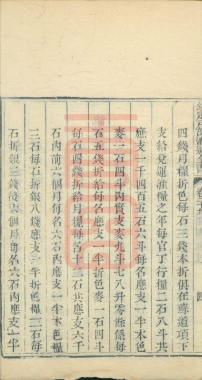 四錢月糧折色每石三錢本折俱在壽道項下
支給兌運漕糧之年每官丁行糧二石八斗共
應支一千四百五石六斗每名應支一半本色
麥一石四斗內實支麥九斗七八升零餘係每
石五錢折給每名應支一半折色一石四斗
每石四錢折給月糧十二石共應支六千
石內前六個月每名六石內應支一半本色糧
三石每石折銀八錢應支一半折色糧三石每
石折銀三錢後六個月每名六石內應支一半